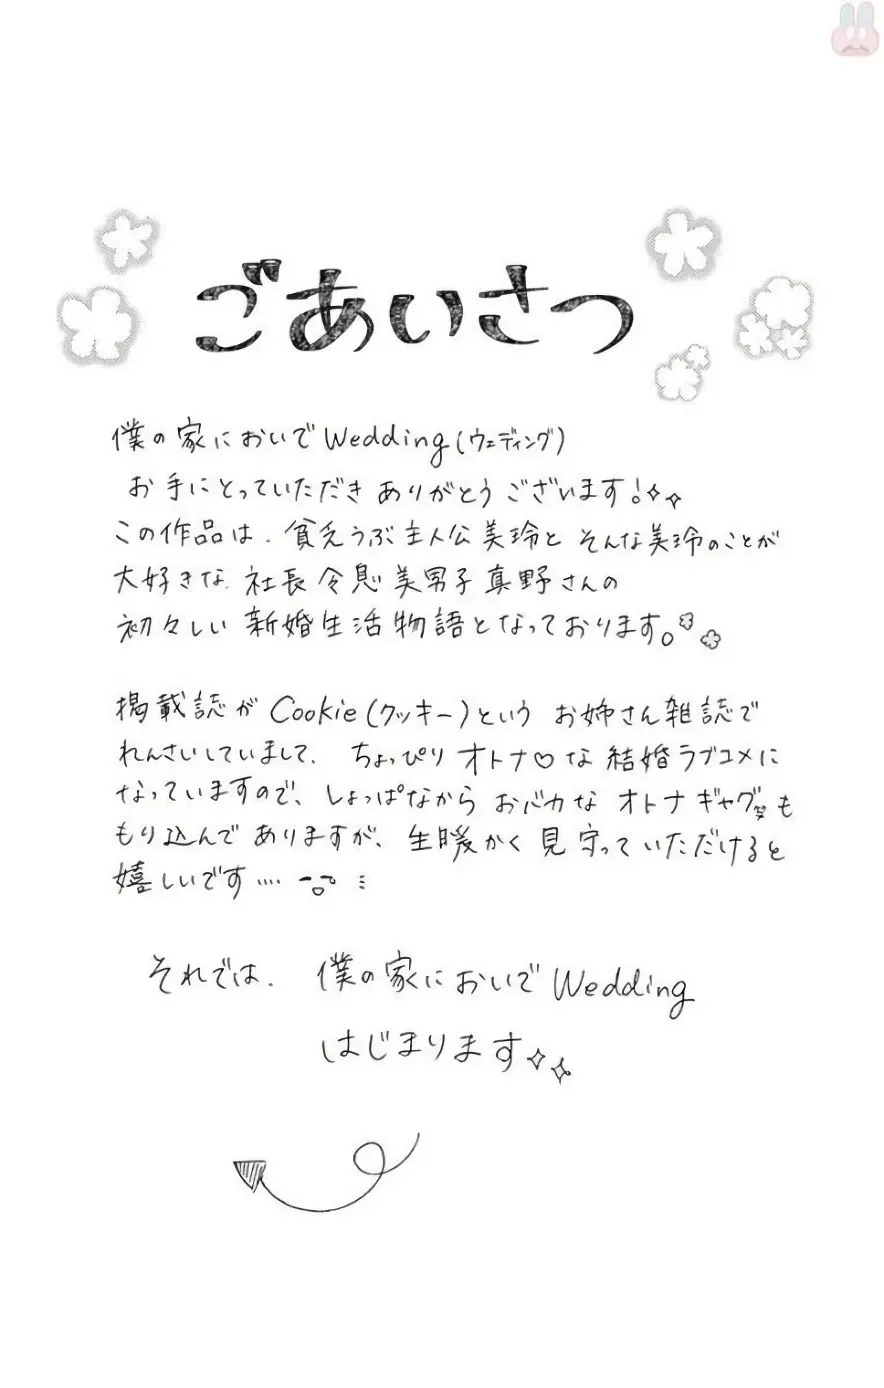 ごあいさつ
僕の家においでWedding(ウェディング)
お手にとっていただきありがとうございます!
この作品は、貧乏うぶ主人公美玲とそんな美玲のことが
大好きな、社長令息美男子真野さんの
初々しい新婚生活物語となっております。
掲載誌がCookie(クッキー)というお姉さん雑誌で
れんさいしていまして、ちょっぴりオトナ♡な結婚ラブコメに
なっていますので、しょっぱなからおバカなオトナギャグも
もり込んでありますが、生暖かく見守っていただけると
嬉しいです….
それでは、僕の家においでWedding
はじまります